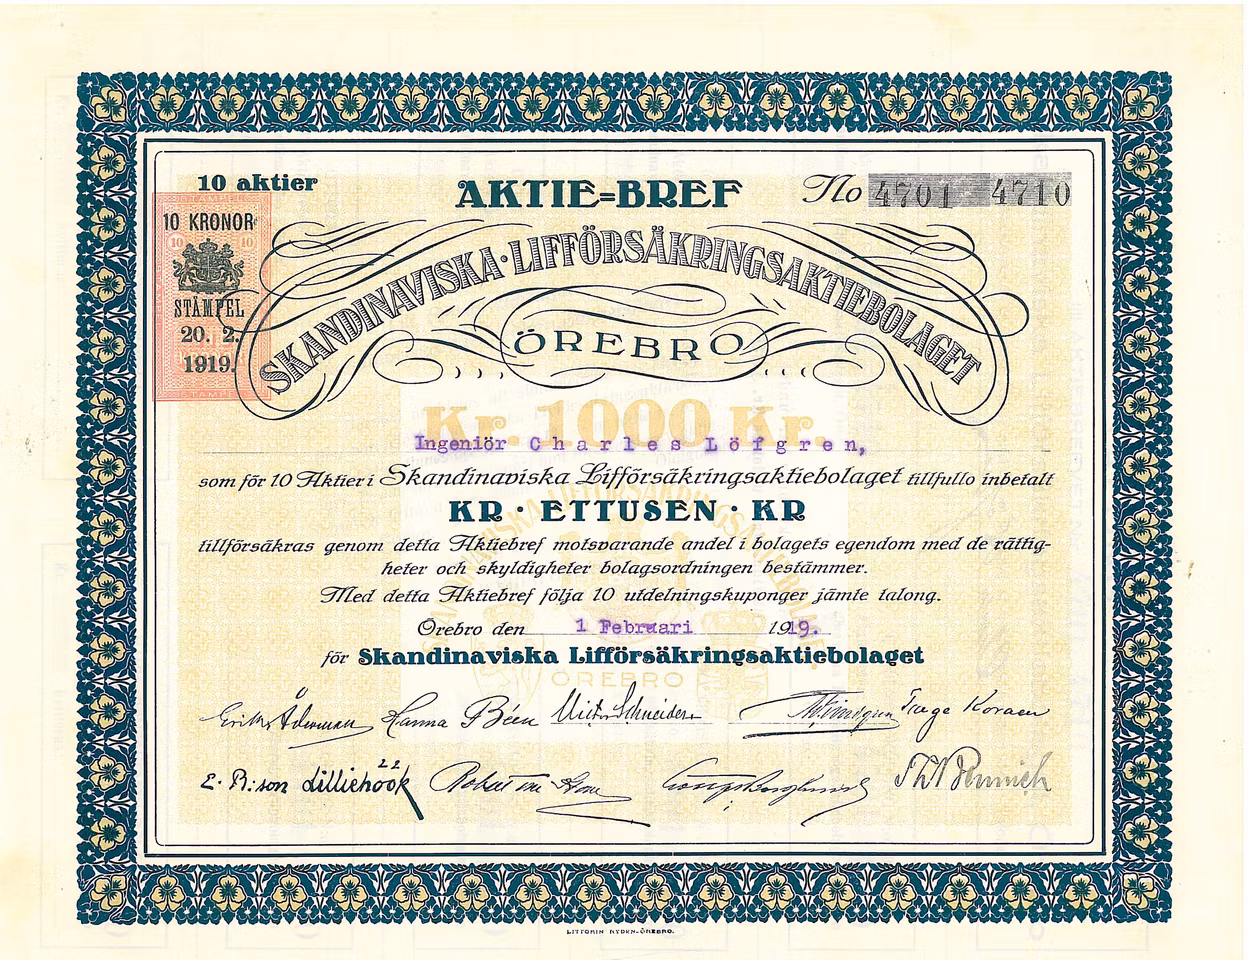 10 aktier
AKTIE=BREF
No 4701 4710
STÄMPEL
10 KRONOR
10 10
STÄMPEL
20. 2.
1919.
STÄMPEL
SKANDINAVISKA·LIFFÖRSÄKRINGSAKTIEBOLAGET
ÖREBRO
Kr. 1000 Kr.
Ingeniör Charles Löfgren,
som för 10 Aktier i Skandinaviska Lifförsäkringsaktiebolaget tillfullo inbetalt
KR · ETTUSEN · KR
tillförsäkras genom detta Aktiebref motsvarande andel i bolagets egendom med de rättig-
heter och skyldigheter bolagsordningen bestämmer.
Med detta Aktiebref följa 10 utdelningskuponger jämte talong.
Örebro den 1 Februari 1919.
för Skandinaviska Lifförsäkringsaktiebolaget
ÖREBRO
Hanna Béen Victor Schneider
E. B:son Lilliehöök Robert